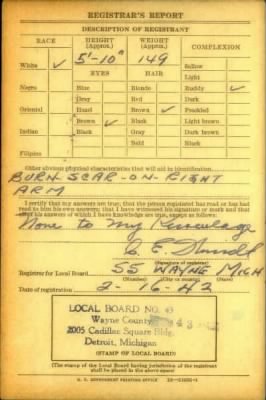 REGISTRAR'S REPORT
DESCRIPTION OF REGISTRANT
RACE HEIGHT (Approx.) WEIGHT (Approx.) COMPLEXION
White ✓ 5'-10" 149 Sallow
EYES HAIR Light
Negro Blue Blonde Ruddy ✓
Gray Red Dark
Oriental Hazel Brown ✓ Freckled
Brown ✓ Black Light brown
Indian Black Gray Dark brown
Bald Black
Filipino
Other obvious physical characteristics that will aid in identification
BURN SCAR-ON-RIGHT
ARM
I certify that my answers are true; that the person registered has read or has had
read to him his own answers; that I have witnessed his signature or mark and that
all of his answers of which I have knowledge are true, except as follows:
None to my Knowledge
C. E.
(Signature of registrar)
Registrar for Local Board 55 WAYNE MICH
(Number) (City or county) (State)
Date of registration 2-16-42
LOCAL BOARD NO. 43
Wayne County 43
2005 Cadillac Square Bldg.
Detroit, Michigan
(STAMP OF LOCAL BOARD)
(The stamp of the Local Board having jurisdiction of the registrant
shall be placed in the above space)
U. S. GOVERNMENT PRINTING OFFICE